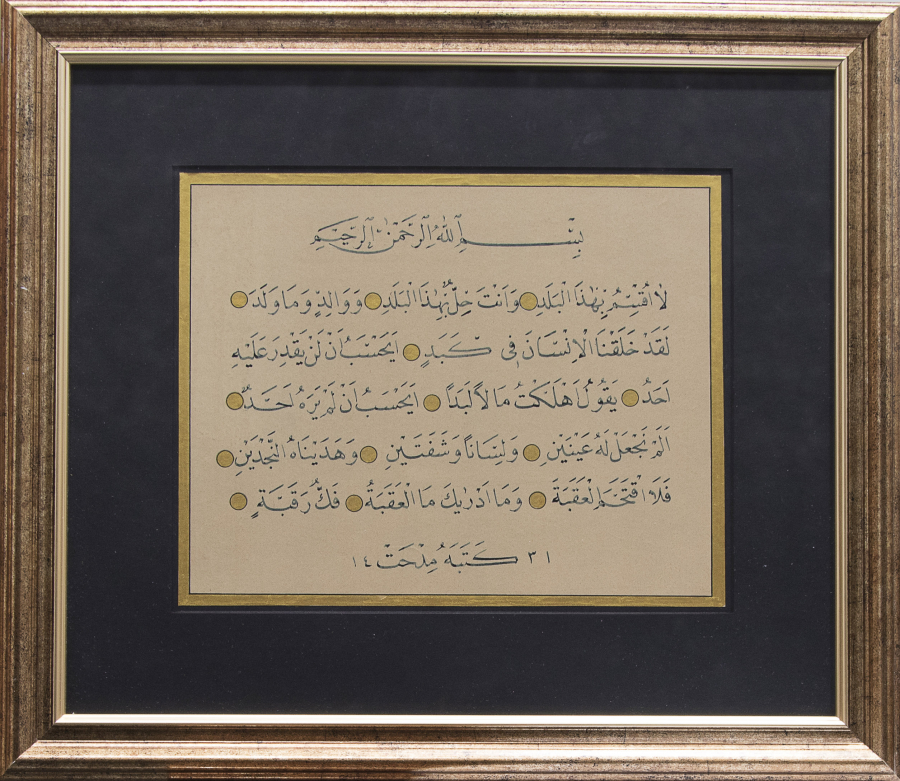 بِسْمِ اللّٰهِ الرَّحْمٰنِ الرَّحِيمِ
لَا اُقْسِمُ بِهٰذَا الْبَلَدِ وَاَنْتَ حِلٌّ بِهٰذَا الْبَلَدِ وَوَالِدٍ وَمَا وَلَدَ
لَقَدْ خَلَقْنَا الْاِنْسَانَ فِى كَبَدٍ اَيَحْسَبُ اَنْ لَنْ يَقْدِرَ عَلَيْهِ
اَحَدٌ يَقُولُ اَهْلَكْتُ مَالًا لُبَدًا اَيَحْسَبُ اَنْ لَمْ يَرَهُ اَحَدٌ
اَلَمْ نَجْعَلْ لَهُ عَيْنَيْنِ وَلِسَانًا وَشَفَتَيْنِ وَهَدَيْنَاهُ النَّجْدَيْنِ
فَلَا اقْتَحَمَ الْعَقَبَةَ وَمَا اَدْرٰيكَ مَا الْعَقَبَةُ فَكُّ رَقَبَةٍ
كَتَبَهُ مِدْحَتْ ١٤٣١